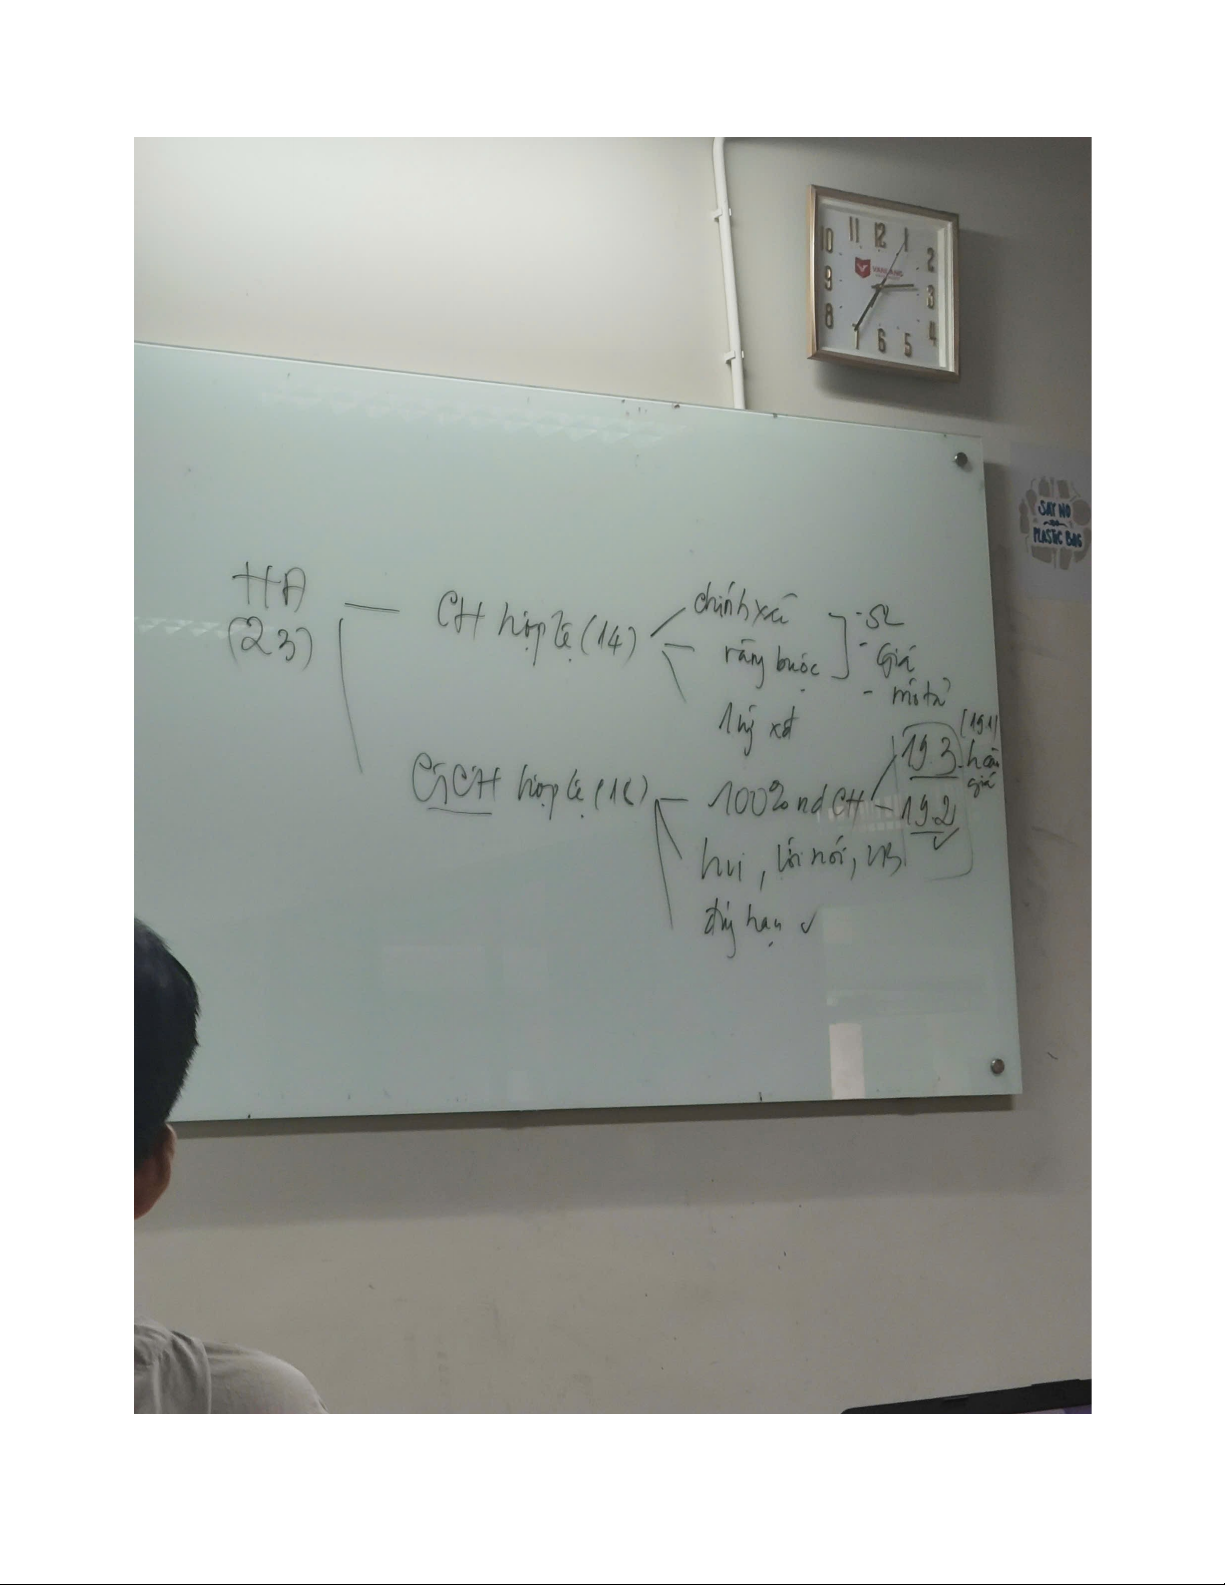 11 12 1
10 2
9 3
8 4
7 6 5
VANLANG
SAY NO
PLASTIC BAG
HA
(23)
CH hợp lệ (14)
chính xác
ràng buộc
- SL
- Giá
- mô tả
GCH hợp lệ (16)
100% nd CH
19.3
(19.1)
giá
19.2
hvi, lời nói, VB
đúng hạn